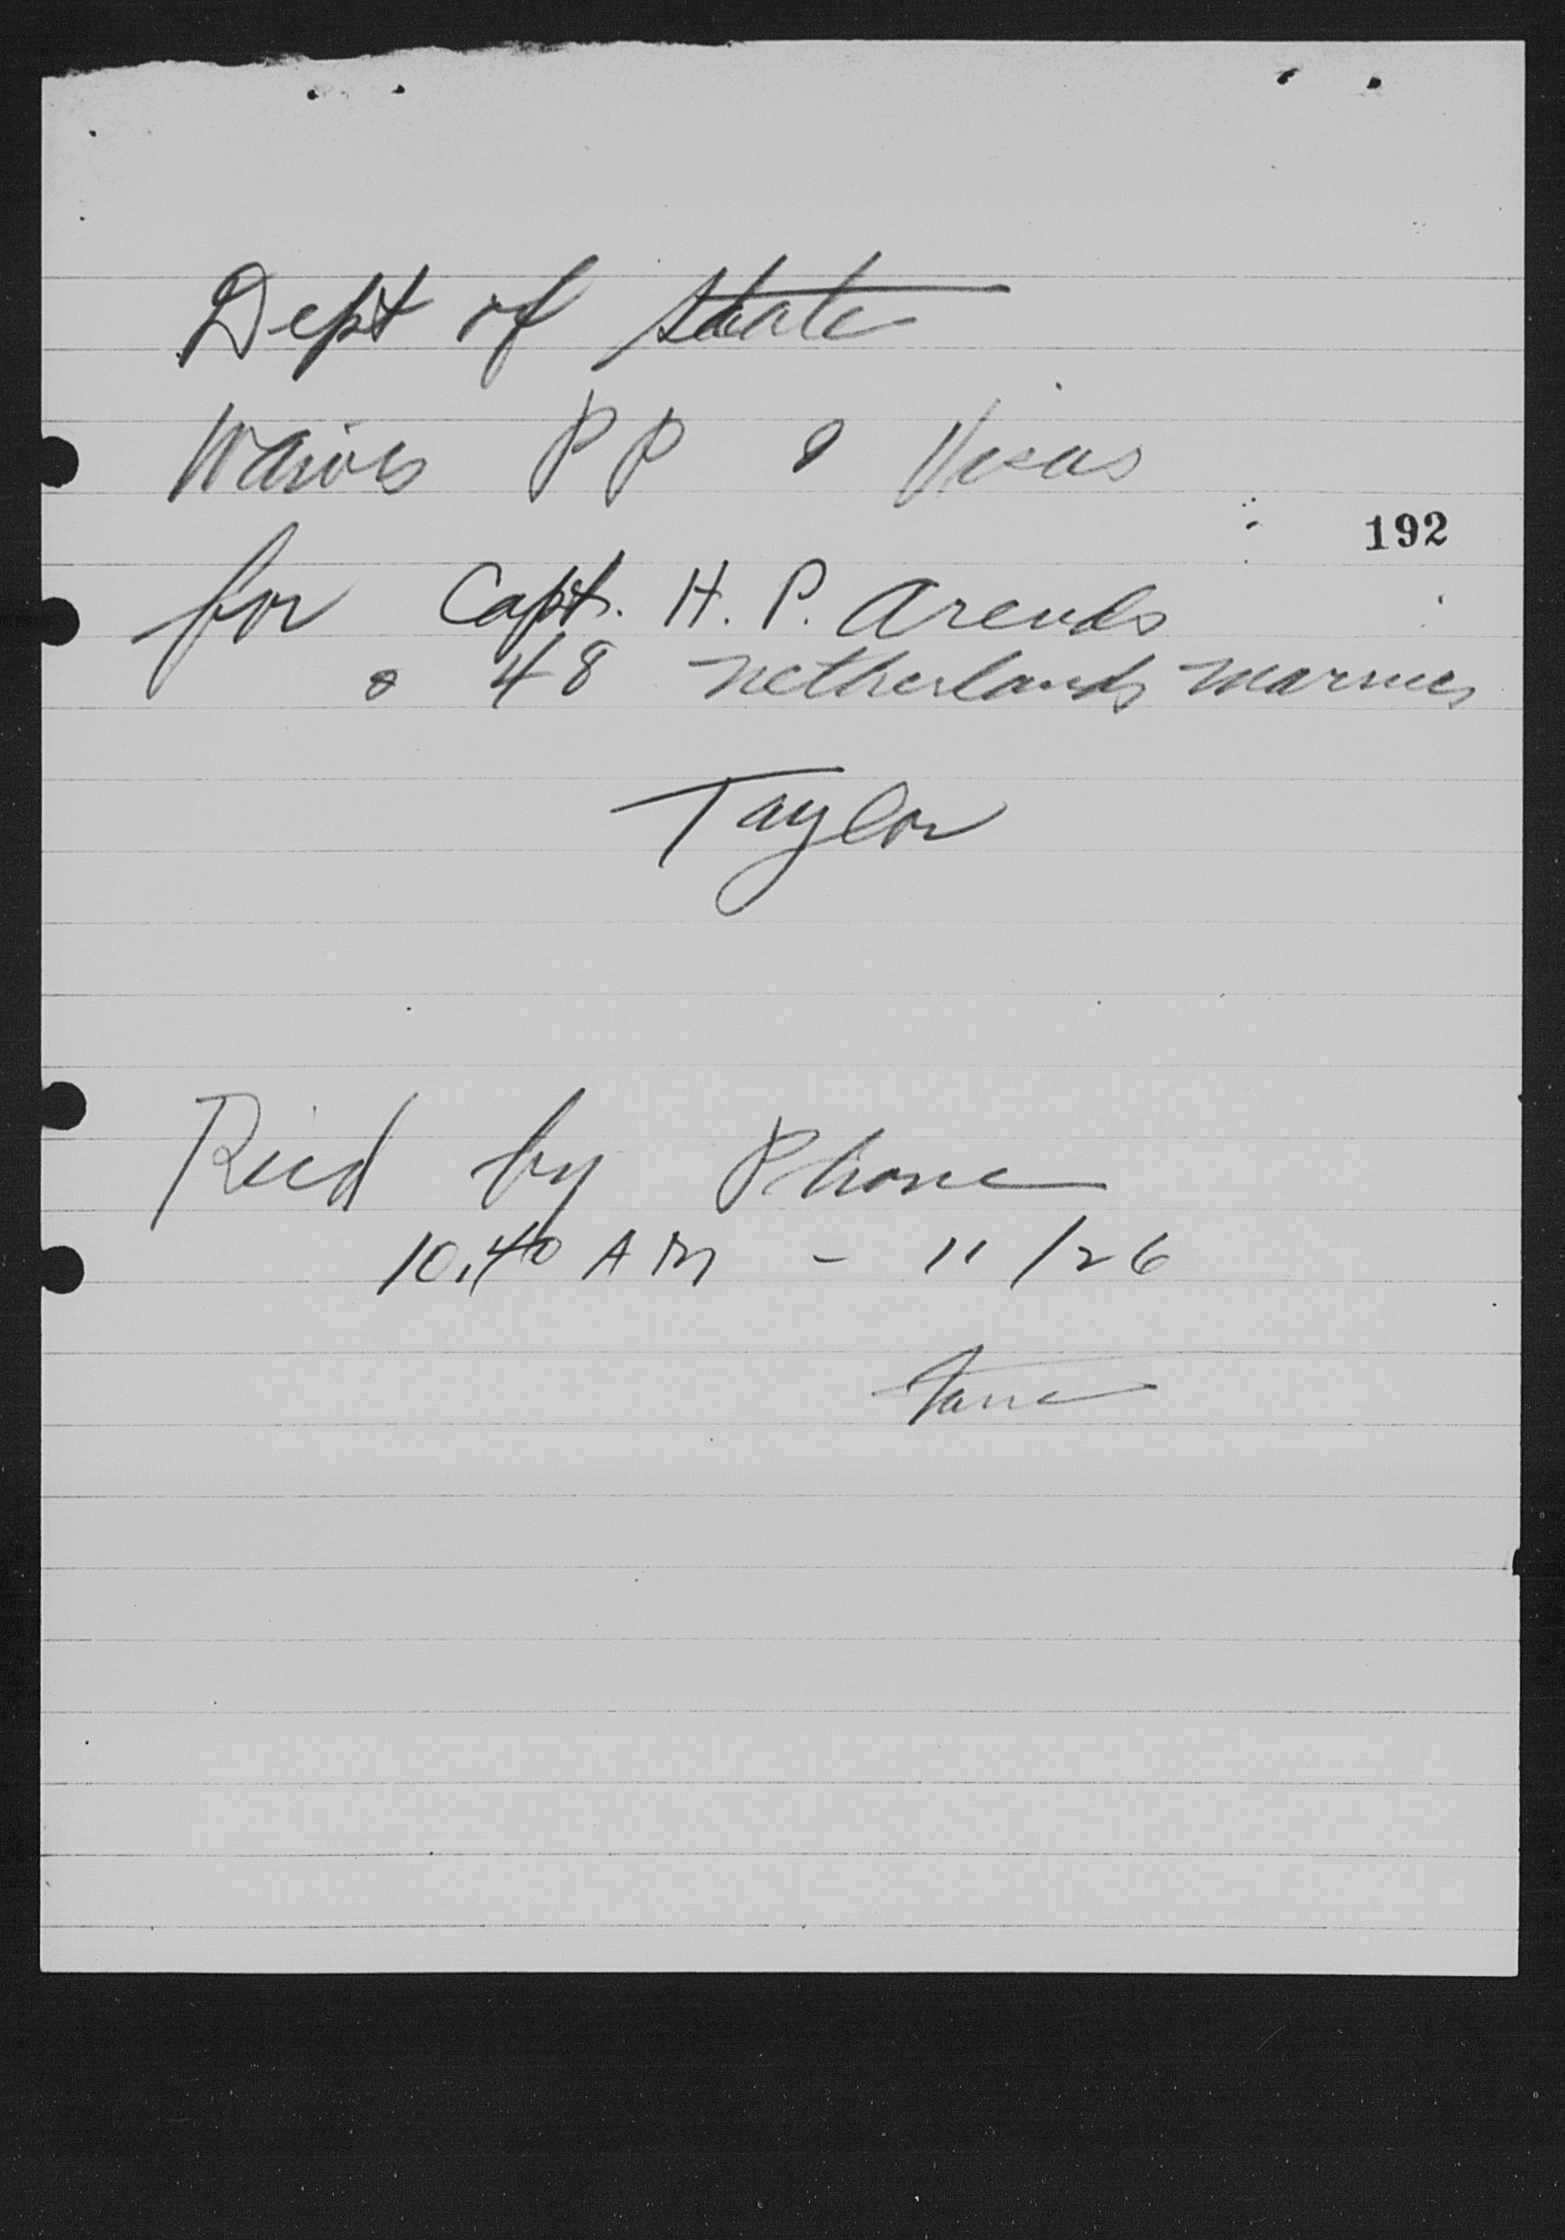 Dept of State
Waives PP & Visas
192
for Capt. H. P. Arends
& 48 Netherlands Marines
Taylor
Rec'd by Phone
10.40 AM - 11/26